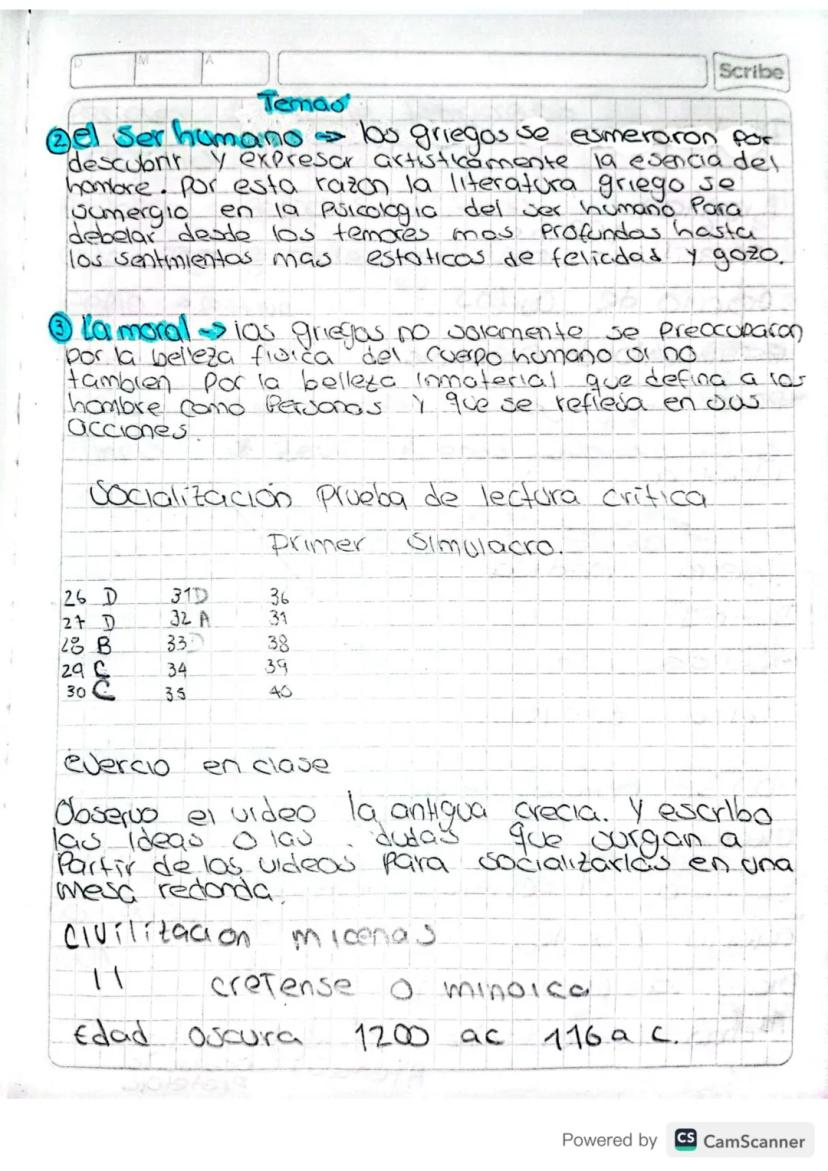 D M A
Scribe
Temas
② el ser humano => los griegos se esmeraron por
descubrir y expresar artisticamente la esencia del
hombre. Por esta razon la literatura griego se
sumergio en la Psicologia del ser humano Para
debelar desde los temores mas Profundas hasta
los sentmientas mas estaticos de felicdas y gozo.
③ La moral -> las griegas no solamente se Preocuparon
por la belleza fisica del cuerpo humano si no
tambien Por la belleza inmaterial que defina a las
hombre como Personas y que se refleja en sus
acciones.
Socialización Prueba de lectura crítica
Primer Simulacro.
26 D 31 D 36
27 D 32 A 37
28 B 33 38
29 C 34 39
30 C 35 40
ejercio en clase
Observo el video la antigua crecia. Y escribo
las ideas o las dudas que surgan a
Partir de los videos Para socializarlas en una
mesa redonda.
Civilitacion micenas
11 cretense o minoica
Edad oscura 1200 ac 116 a c.
Powered by CS CamScanner